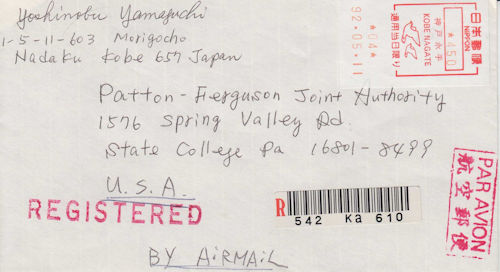 Yoshinobu Yamaguchi
1-5-11-603 Morigocho
Nadaku Kobe 657 Japan
92.05.11
*04*
*450
日本郵便
NIPPON
神戸永手
KOBE NAGATE
適用当日限り
Patton-Ferguson Joint Authority
1576 Spring Valley Rd.
State College Pa 16801-8499
U.S.A.
REGISTERED
R
542 Ka 610
PAR AVION
航空郵便
BY AiRMAiL